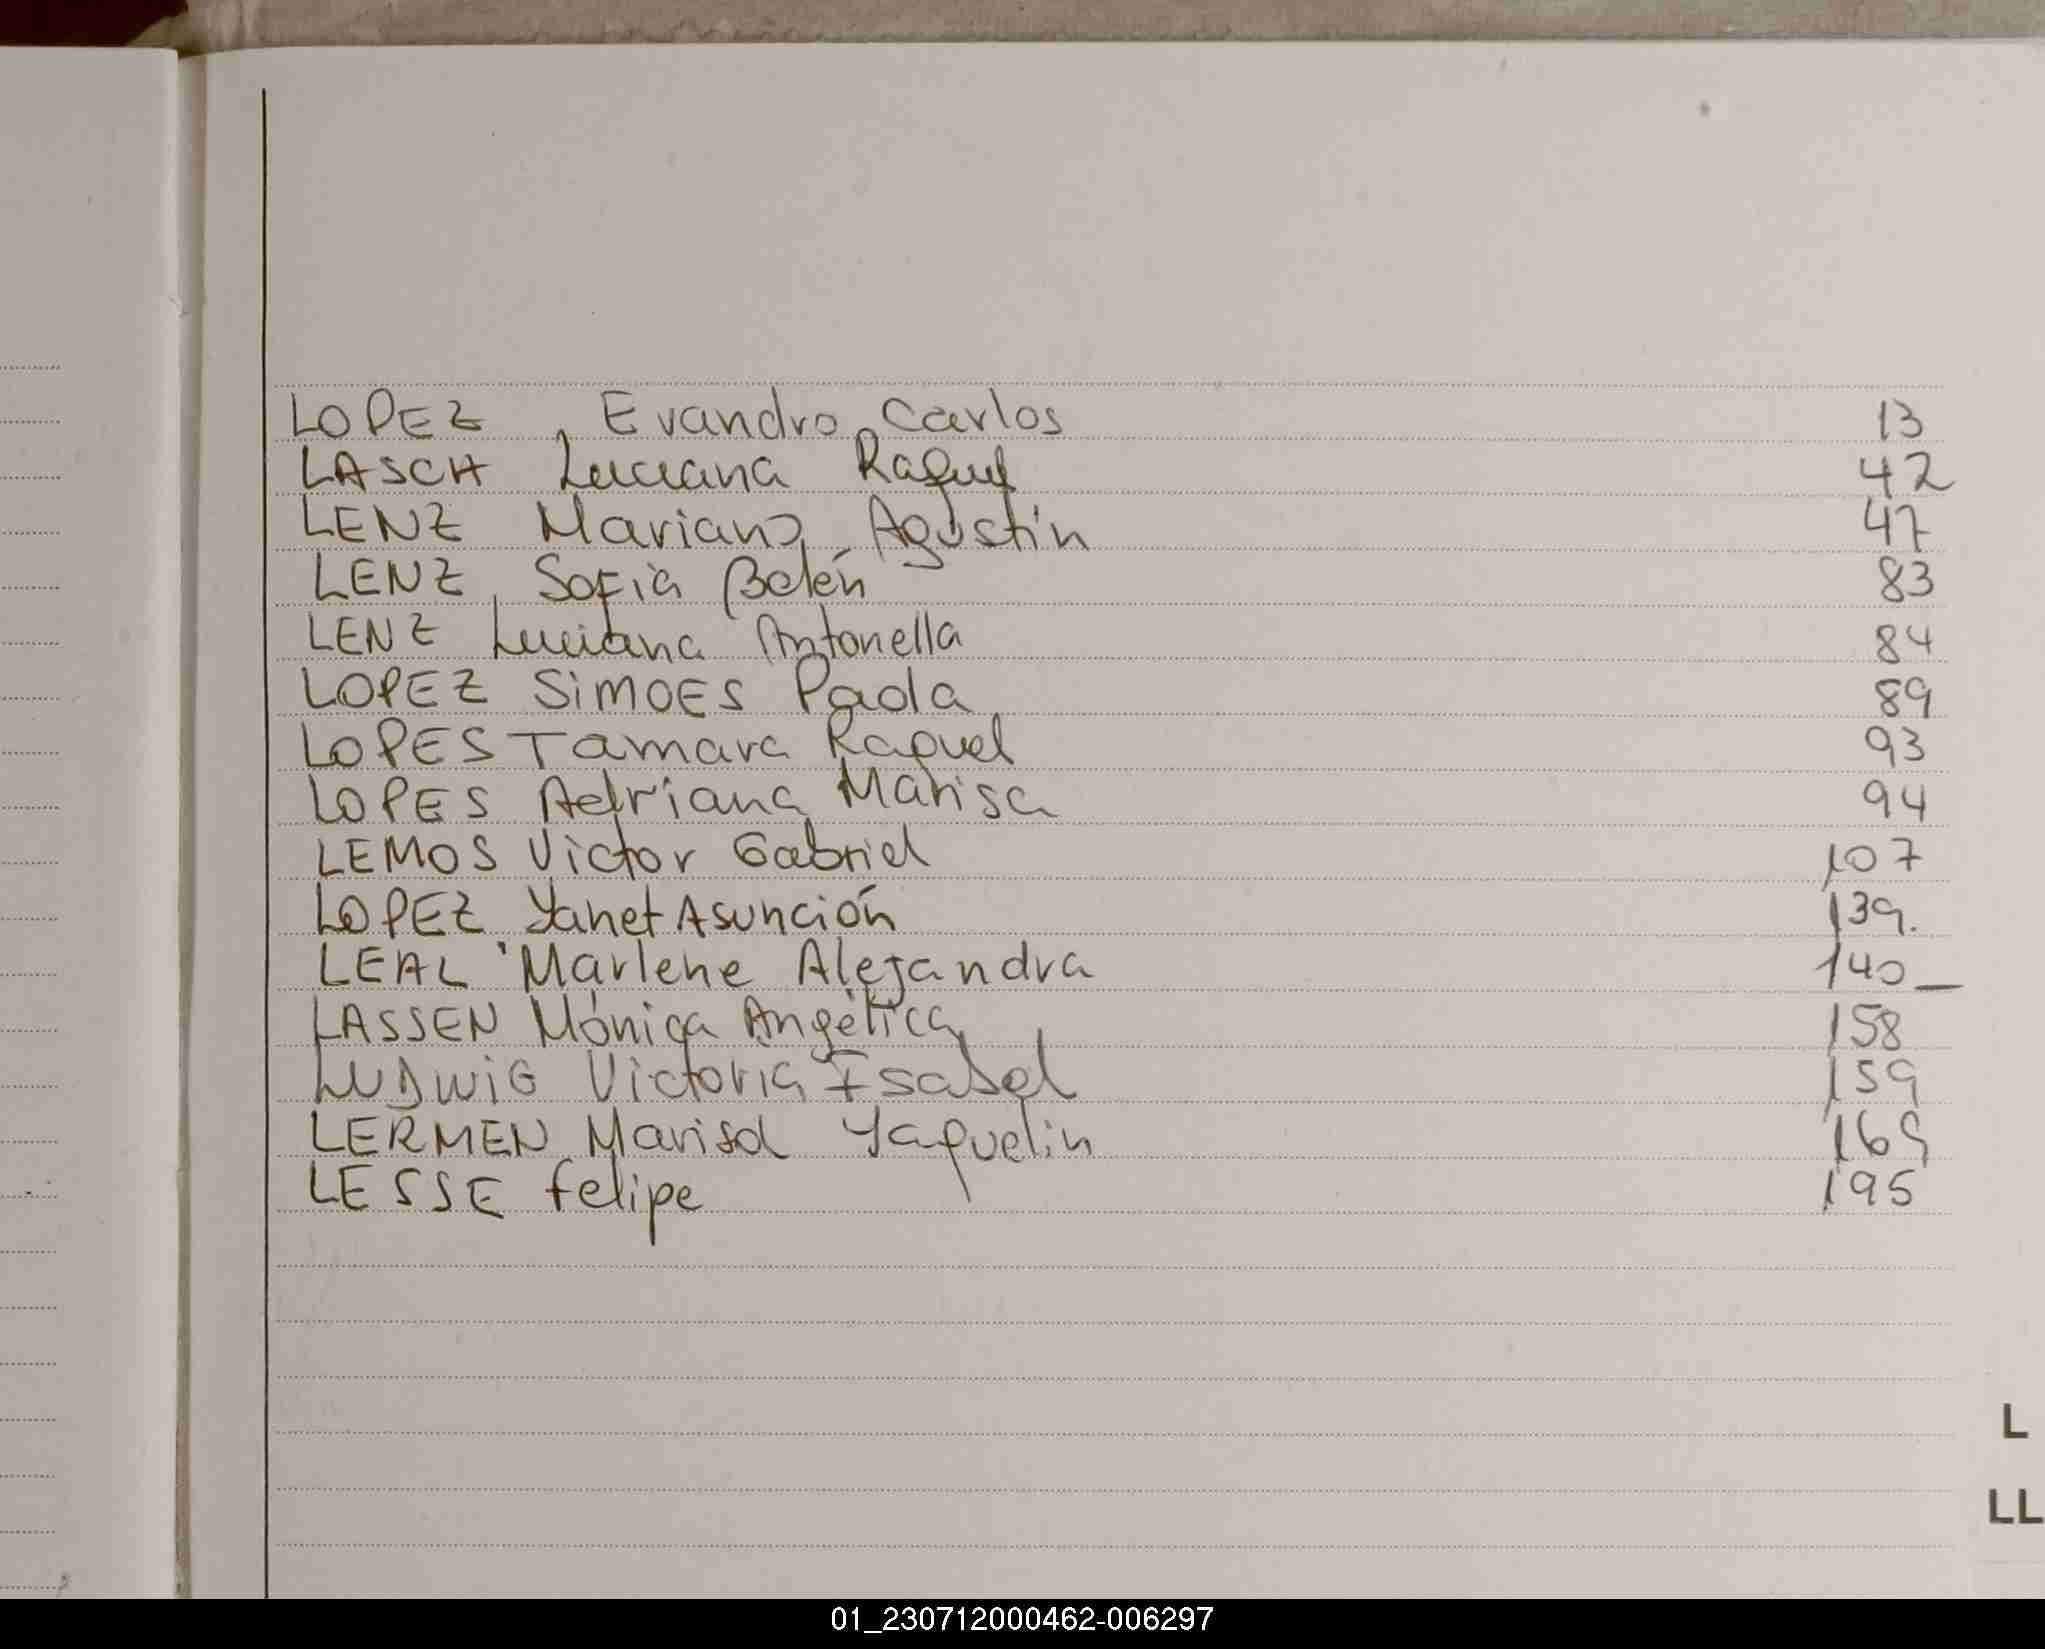 LOPEZ, Evandro Carlos 13
LASCH Luciana Raquel 42
LENZ Mariano Agustín 47
LENZ, Sofia Belén 83
LENZ Luciana Antonella 84
LOPEZ SiMOES Paola 89
LOPES Tamara Raquel 93
LOPES Adriana Marisa 94
LEMOS Victor Gabriel 107
LOPEZ Yanet Asunción 139.
LEAL Marlene Alejandra 140_
LASSEN Mónica Angélica 158
LUDWiG Victoria Isabel 159
LERMEN Marisol Yaquelin 169
LESSE felipe 195
L
LL
01_230712000462-006297